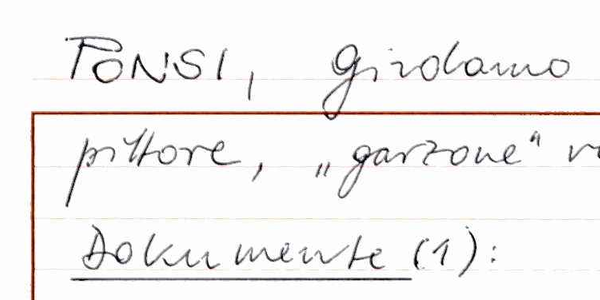 PONSI, Girolamo
pittore, „garzone“
Dokumente (1):